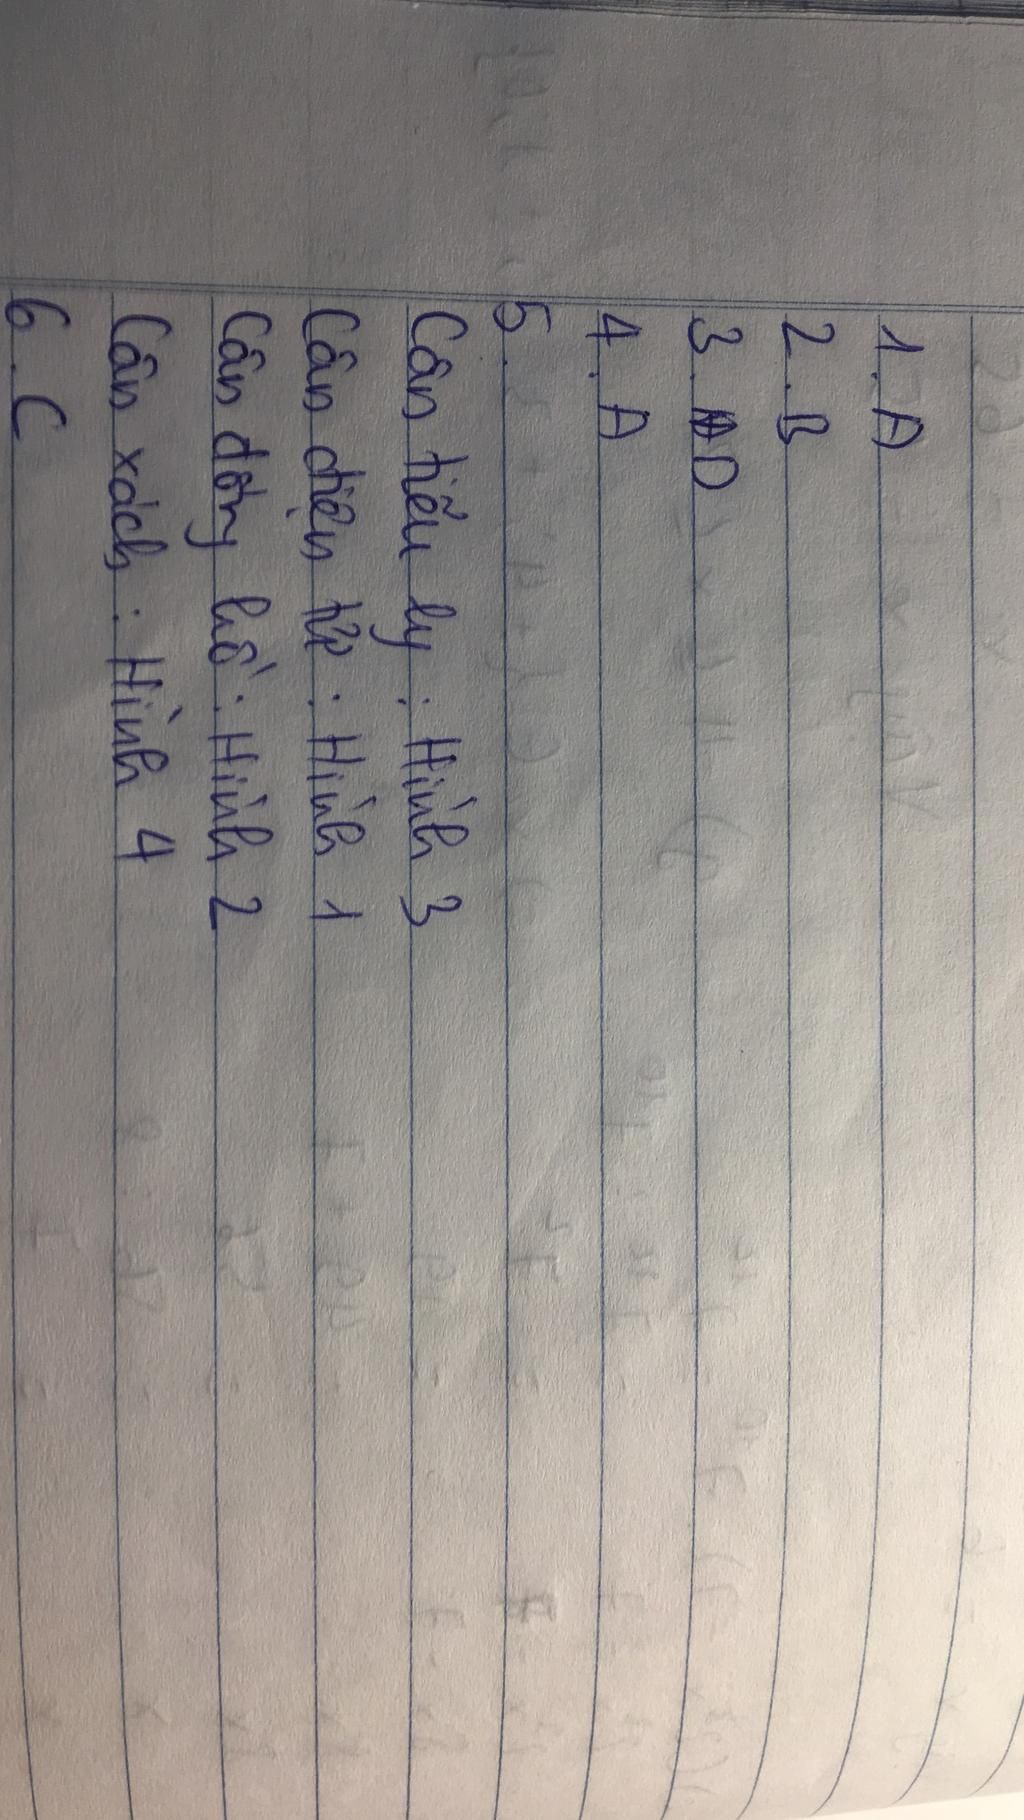 1. A
2. B
3. D
4. A
5.
Cân tiểu ly : Hình 3
Cân điện tử : Hình 1
Cân đồng hồ : Hình 2
Cân xách : Hình 4
6. C